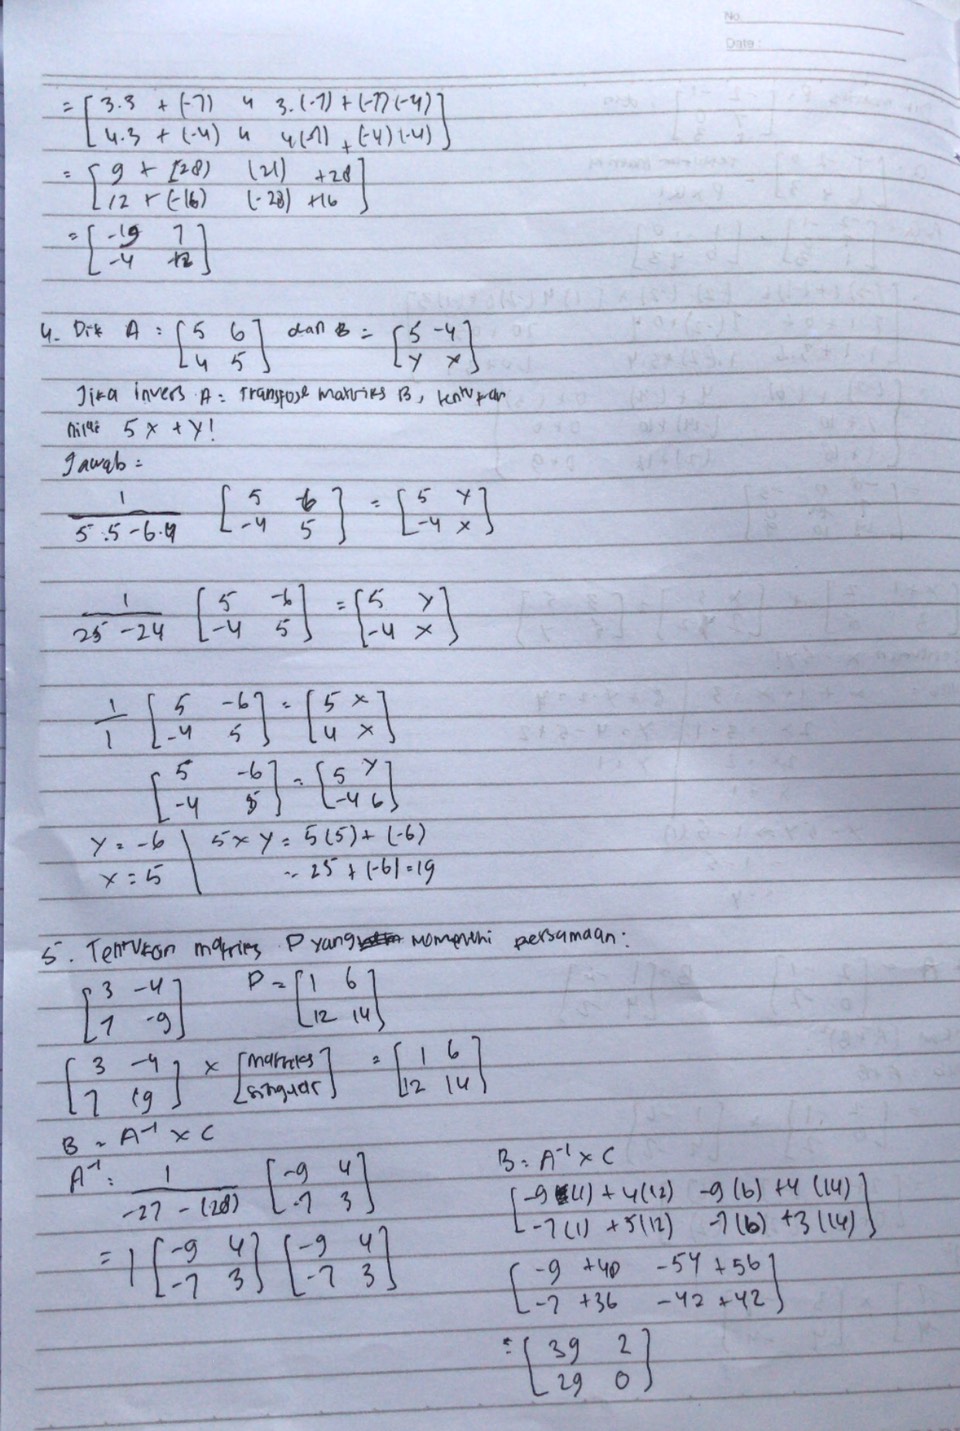 No
Date :
= [ 3.3 + (-7) 4 3.(-7) + (-7)(-4) ]
[ 4.3 + (-4) 4 4(-7) + (-4)(-4) ]
= [ 9 + (28) (21) +28 ]
[ 12 + (-16) (-28) +16 ]
= [ -19 7 ]
[ -4 ]
4. Dik A = [ 5 6 ] dan B = [ 5 -4 ]
[ 4 5 ] [ y x ]
Jika invers A = Transpose matriks B, tentukan
nilai 5x + y!
Jawab =
1 [ 5 -6 ] = [ 5 y ]
5.5 - 6.4 [ -4 5 ] [ -4 x ]
1 [ 5 -6 ] = [ 5 y ]
25 - 24 [ -4 5 ] [ -4 x ]
1 [ 5 -6 ] = [ 5 x ]
1 [ -4 5 ] [ 4 x ]
[ 5 -6 ] = [ 5 y ]
[ -4 5 ] [ -4 6 ]
y = -6 | 5x y = 5(5) + (-6)
x = 5 | = 25 + (-6) = 19
5. Tentukan matriks P yang memenuhi persamaan :
[ 3 -4 ] P = [ 1 6 ]
[ 7 -9 ] [ 12 14 ]
[ 3 -4 ] x [ matriks ] = [ 1 6 ]
[ 7 (9 ] [ singular ] [ 12 14 ]
B = A⁻¹ x C
A⁻¹ = 1 [ -9 4 ]
-27 - (28) [ -7 3 ]
= 1 [ -9 4 ] [ -9 4 ]
[ -7 3 ] [ -7 3 ]
B = A⁻¹ x C
[ -9 (1) + 4(12) -9 (6) + 4 (14) ]
[ -7 (1) + 3(12) -7(6) + 3(14) ]
[ -9 + 48 -54 + 56 ]
[ -7 + 36 -42 + 42 ]
= [ 39 2 ]
[ 29 0 ]